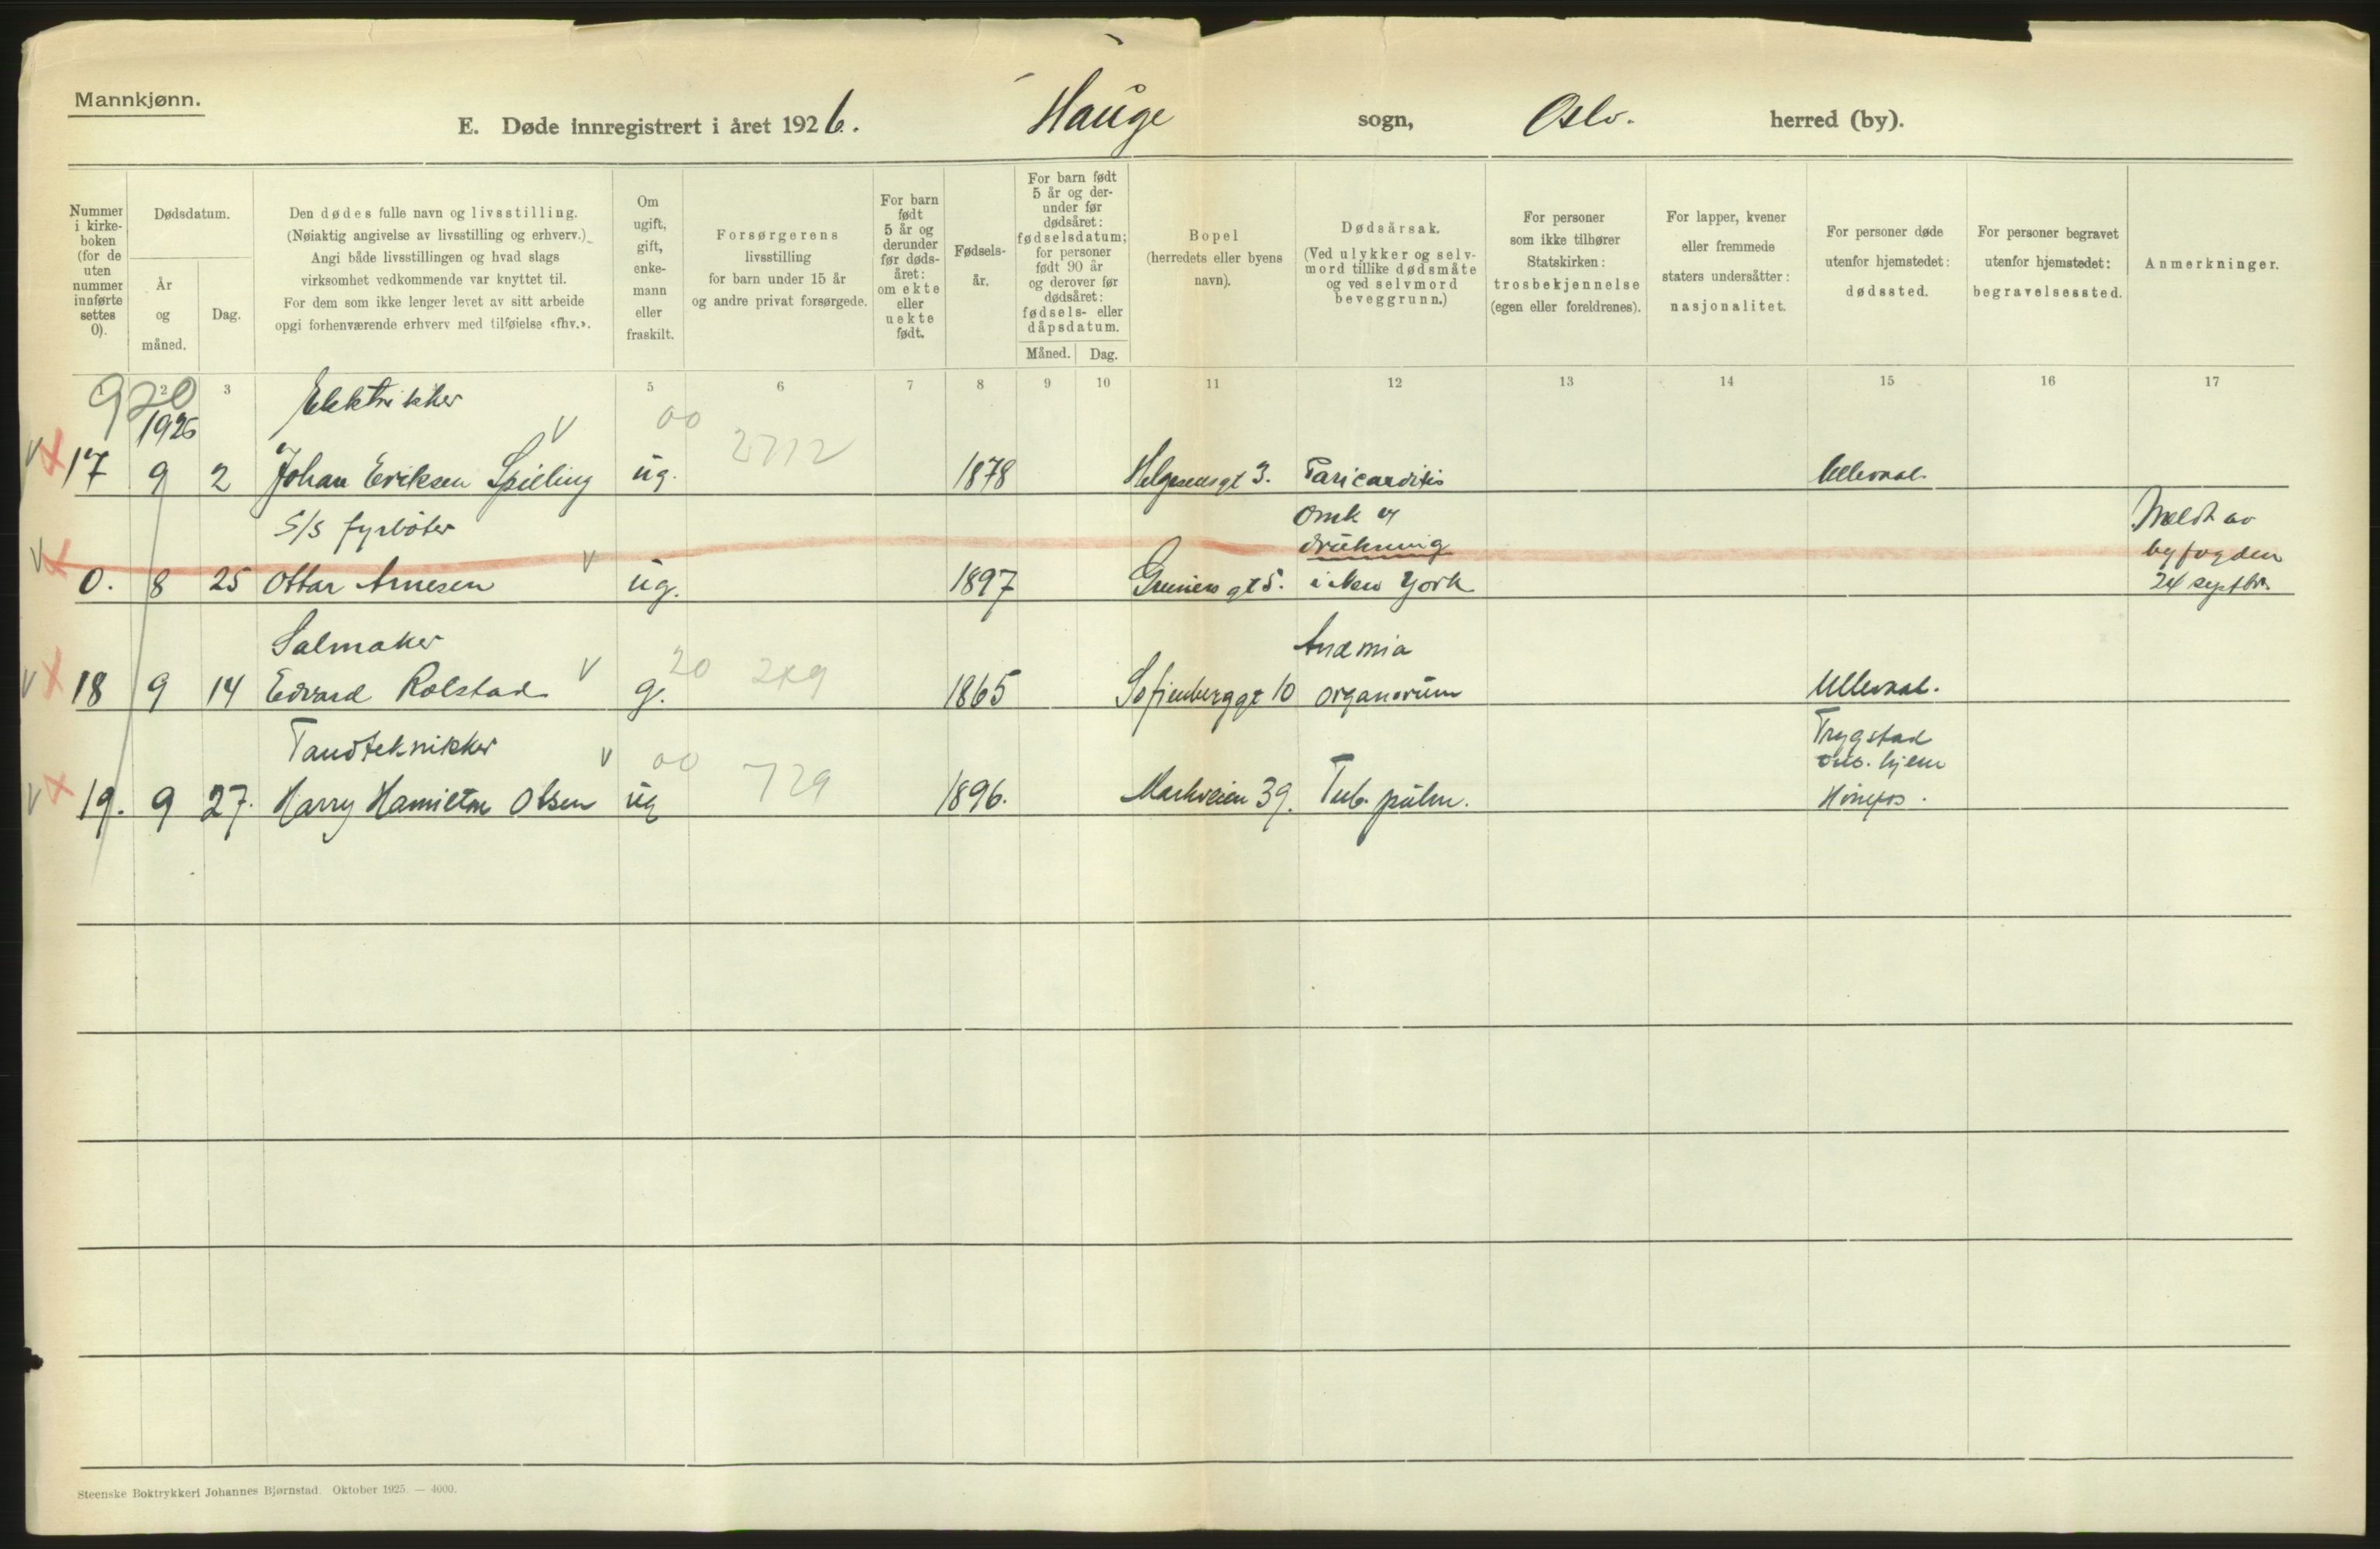 Mannkjønn.
E. Døde innregistrert i året 1926. Hauge sogn, Oslo. herred (by).
Nummer i kirke-boken (for de uten nummer innførte settes 0).
Dødsdatum.
År og måned.
Dag.
Den dødes fulle navn og livsstilling.
(Nøiaktig angivelse av livsstilling og erhverv.)
Angi både livsstillingen og hvad slags
virksomhet vedkommende var knyttet til.
For dem som ikke lenger levet av sitt arbeide
opgi forhenværende erhverv med tilføielse «fhv.».
Om ugift, gift, enke-mann eller fraskilt.
Forsørgerens
livsstilling
for barn under 15 år
og andre privat forsørgede.
For barn født 5 år og derunder før døds-året: om ekte eller uekte født.
Fødsels-år.
For barn født 5 år og der-under før dødsåret: fødselsdatum; for personer født 90 år og derover før dødsåret: fødsels- eller dåpsdatum.
Måned. Dag.
Bopel
(herredets eller byens navn).
Dødsårsak.
(Ved ulykker og selv-mord tillike dødsmåte og ved selvmord beveggrunn.)
For personer som ikke tilhører Statskirken: trosbekjennelse (egen eller foreldrenes).
For lapper, kvener eller fremmede staters undersåtter: nasjonalitet.
For personer døde utenfor hjemstedet: dødssted.
For personer begravet utenfor hjemstedet: begravelsessted.
Anmerkninger.
1 2 3 5 6 7 8 9 10 11 12 13 14 15 16 17
920
1926 Elektrikker V 00 2712
V x 17 9 2 Johan Eriksen Spieling ug. 1878 Helgesensgt 3. Pericarditis Ullevaal.
S/S fyrbøter Omk v Meldt av
drukning byfogden
V x 0. 8 25 Ottar Arnesen V ug. 1897 Gruners gt 5. i New York 24 septbr.
Salmaker Anæmia
V x 18 9 14 Edvard Rolstad V g. 20 249 1865 Sofienberggt 10 organorum Ullevaal.
Tandtekniker V 00 729 Trygstad
hjem
V x 19. 9 27. Harry Hamilton Olsen ug 1896. Markveien 39. Tub. pulm. Hønefos.
Steenske Boktrykkeri Johannes Bjørnstad. Oktober 1925. — 4000.